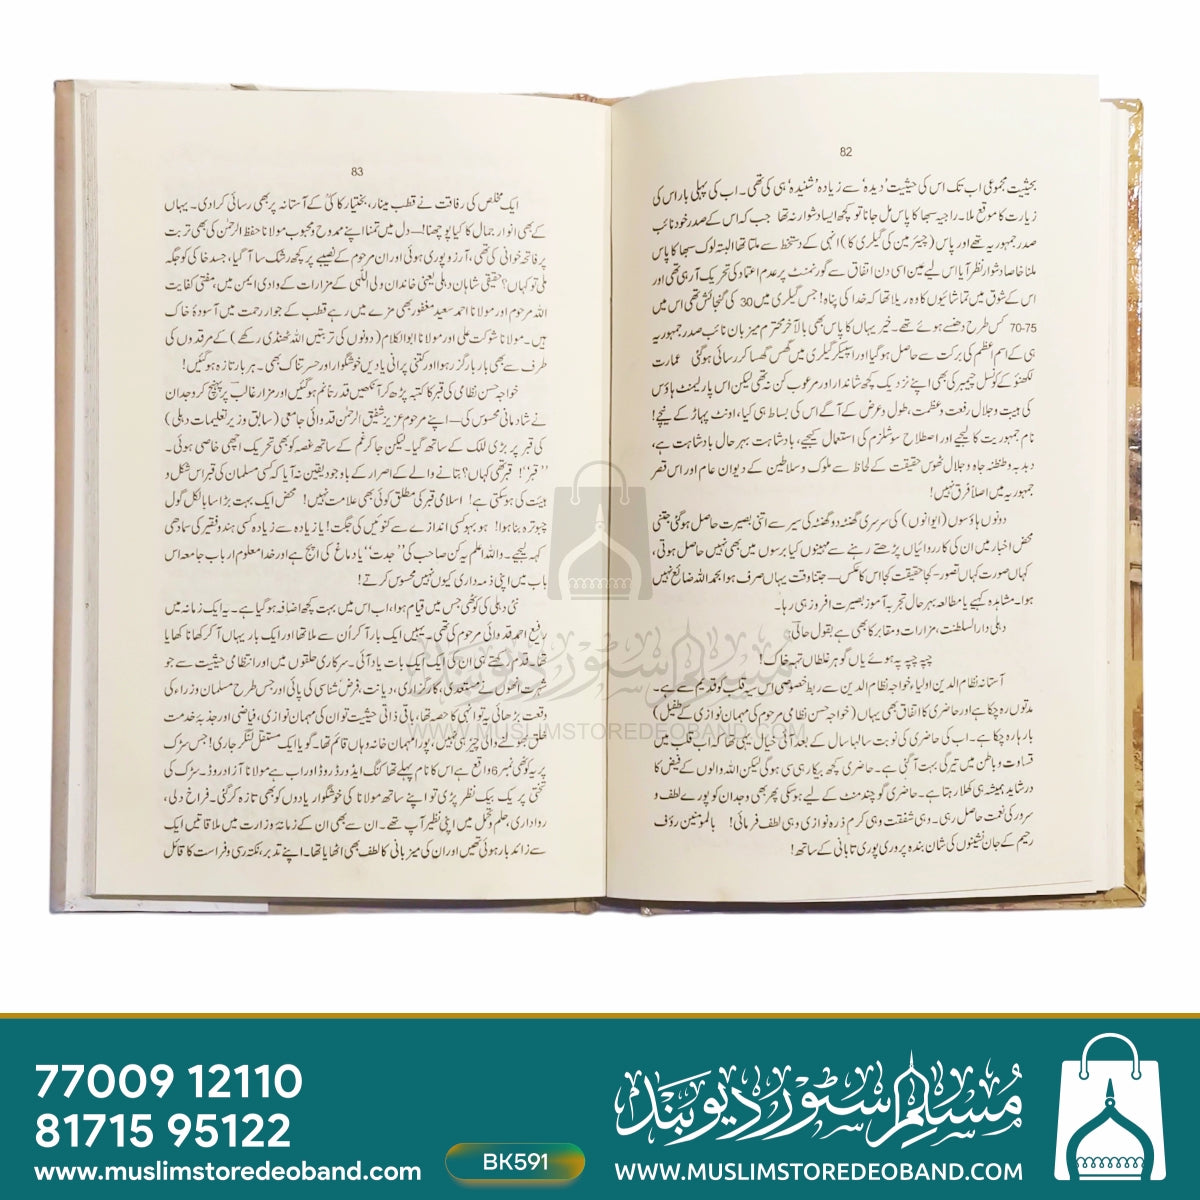 82
بحیثیت مجموعی اب تک اس کی حیثیت ’دیدہ‘ سے زیادہ ’شنیدہ‘ ہی کی تھی۔ اب کی پہلی بار اس کی
زیارت کا موقع ملا۔ راجیہ سبھا کا پاس مل جانا تو کچھ ایسا دشوار نہ تھا جب کہ اس کے صدر خود نائب
صدر جمہوریہ تھے اور پاس (چیئرمین کی گیلری کا) انہی کے دستخط سے ملتا تھا البتہ لوک سبھا کا پاس
ملنا خاصا دشوار نظر آیا اس لیے مین اسی دن اتفاق سے گورنمنٹ پر عدم اعتماد کی تحریک آرہی تھی اور
اس کے شوق میں تماشائیوں کا وہ ریلا تھا کہ خدا کی پناہ! جس گیلری میں 30 کی گنجائش تھی اس میں
70-75 کس طرح دھنسے ہوئے تھے۔ خیر یہاں کا پاس بھی بالآخر محترم میزبان نائب صدر جمہوریہ
ہی کے اسم اعظم کی برکت سے حاصل ہوگیا اور اسپیکر گیلری میں گھس گھسا کر رسائی ہوگئی عمارت
لکھنؤ کے کونسل چیمبر کی بھی اپنے نزدیک کچھ شاندار اور مرعوب کن نہ تھی لیکن اس پارلیمنٹ ہاؤس
کی ہیبت و جلال رفعت و عظمت، طول و عرض کے آگے اس کی بساط ہی کیا، اونٹ پہاڑ کے نیچے!
نام جمہوریت کا لیجیے اور اصطلاح سوشلزم کی استعمال کیجیے، بادشاہت بہر حال بادشاہت ہے،
دبدبہ و طنطنہ جاہ و جلال ٹھوس حقیقت کے لحاظ سے ملوک و سلاطین کے دیوان عام اور اس قصر
جمہوریہ میں اصلاً فرق نہیں!
دونوں ہاؤسوں (ایوانوں) کی سرسری گھنٹہ دو گھنٹہ کی سیر سے اتنی بصیرت حاصل ہوگئی جتنی
محض اخبار میں ان کی کارروائیاں پڑھتے رہنے سے مہینوں کیا برسوں میں بھی نہیں حاصل ہوتی،
کہاں صورت کہاں تصور - کجا حقیقت کجا اس کا عکس — جتنا وقت یہاں صرف ہوا بحمد اللہ ضائع نہیں
ہوا۔ مشاہدہ کہیے یا مطالعہ بہر حال تجربہ آموز بصیرت افروز ہی رہا۔
دہلی دار السلطنت، مزارات و مقابر کا بھی ہے بقول حالیؔ:
چپہ چپہ پہ ہوئے یاں گوہر غلطاں تہہ خاک!
آستانہ نظام الدین اولیاء، خواجہ نظام الدین سے ربط خصوصی اس سیہ قلب کو قدیم سے ہے۔
مدتوں رہ چکا ہے اور حاضری کا اتفاق بھی یہاں (خواجہ حسن نظامی مرحوم کی مہمان نوازی کے طفیل)
بارہا رہ چکا ہے۔ اب کی حاضری کی نوبت سالہا سال کے بعد آئی خیال یہی تھا کہ اب قلب میں
قساوت و باطن میں تیرگی بہت آگئی ہے۔ حاضری کچھ بیکار ہی سی ہوگی لیکن اللہ والوں کے فیض کا
در شاید ہمیشہ ہی کھلا رہتا ہے۔ حاضری گو چند منٹ کے لیے ہوسکی پھر بھی وجدان کو پورے لطف و
سرور کی نعمت حاصل رہی۔ وہی شفقت وہی کرم ذرہ نوازی وہی لطف فرمائی! بالمومنین رؤف
رحیم کے جان نشینوں کی شان بندہ پروری پوری تابانی کے ساتھ!
83
ایک مخلص کی رفاقت نے قطب مینار، بختیار کاکیؒ کے آستانہ پر بھی رسائی کرادی۔ یہاں
کے بھی انوار جمال کا کیا پوچھنا! — دل میں تمنا اپنے ممدوح و محبوب مولانا حفظ الرحمٰن کی بھی تربت
پر فاتحہ خوانی کی تھی، آرزو پوری ہوئی اور ان مرحوم کے نصیبے پر کچھ رشک سا آ گیا، جسد خاکی کو جگہ
ملی تو کہاں؟ حقیقی شاہان دہلی یعنی خاندان ولی اللّٰہی کے مزارات کے وادی ایمن میں، مفتی کفایت
اللہ مرحوم اور مولانا احمد سعید مغفور بھی مزے میں رہے قطب کے جوار رحمت میں آسودۂ خاک
ہیں۔ مولانا شوکت علی اور مولانا ابوالکلام (دونوں کی تربتیں اللہ ٹھنڈی رکھے) کے مرقدوں کی
طرف سے بھی بار بار گزر ہوا اور کتنی پرانی یادیں خوشگوار اور حسرتناک بھی۔ ہر بار تازہ ہوگئیں!
خواجہ حسن نظامی کی قبر کا کتبہ پڑھ کر آنکھیں قدرتاً نم ہوگئیں اور مزار غالبؔ پر پہنچ کر وجدان
نے شادمانی محسوس کی — اپنے مرحوم عزیز شفیق الرحمٰن قدوائی جامعی (سابق وزیر تعلیمات دہلی)
کی قبر پر بڑی للک کے ساتھ گیا۔ لیکن جا کر غم کے ساتھ غصہ کو بھی تحریک اچھی خاصی ہوئی۔
’’قبر‘‘! قبر تھی کہاں؟ بتانے والے کے اصرار کے باوجود یقین نہ آیا کہ کسی مسلمان کی قبر اس شکل و
ہیئت کی ہوسکتی ہے! اسلامی قبر کی مطلق کوئی بھی علامت نہیں! محض ایک بہت بڑا سا بالکل گول
چبوترہ بنا ہوا! ہو بہو کسی اندازے سے کنوئیں کی جگت! یا زیادہ سے زیادہ کسی ہندو فقیر کی سمادھی
کہہ لیجیے۔ واللہ اعلم یہ کن صاحب کی ’’جدت‘‘ یا دماغ کی اپج ہے اور خدا معلوم ارباب جامعہ اس
باب میں اپنی ذمہ داری کیوں نہیں محسوس کرتے!
نئی دہلی کی کوٹھی جس میں قیام ہوا، اب اس میں بہت کچھ اضافہ ہوگیا ہے۔ یہ ایک زمانہ میں
رفیع احمد قدوائی مرحوم کی تھی۔ یہیں ایک بار آ کر اُن سے ملا تھا اور ایک بار یہاں آ کر کھانا کھایا
تھا۔ قدم رکھتے ہی ان کی ایک ایک بات یاد آئی۔ سرکاری حلقوں میں اور انتظامی حیثیت سے جو
شہرت انھوں نے مستعدی، کارگزاری، دیانت، فرض شناسی کی پائی اور جس طرح مسلمان وزراء کی
وقعت بڑھائی یہ تو انہی کا حصہ تھا، باقی ذاتی حیثیت تو ان کی مہمان نوازی، فیاضی اور جذبۂ خدمت
خلق بھولنے والی چیز ہی نہیں، پورا مہمان خانہ وہاں قائم تھا۔ گویا ایک مستقل لنگر جاری! جس سڑک
پر یہ کوٹھی نمبر 6 واقع ہے اس کا نام پہلے تھا کنگ ایڈورڈ روڈ اور اب ہے مولانا آزاد روڈ۔ سڑک کی
تختی پر یک بیک نظر پڑی تو اپنے ساتھ مولانا کی خوشگوار یادوں کو بھی تازہ کر گئی۔ فراخ دلی،
رواداری، حلم و تحمل میں اپنی نظیر آپ تھے۔ ان سے بھی ان کے زمانۂ وزارت میں ملاقاتیں ایک
سے زائد بار ہوئی تھیں اور ان کی میزبانی کا لطف بھی اٹھایا تھا۔ اپنے تدبر، نکتہ رسی و فراست کا قائل
مسلم سٹور دیوبند
WWW.MUSLIMSTOREDEOBAND.COM
77009 12110
81715 95122
www.muslimstoredeoband.com
BK591
مسلم سٹور دیوبند
WWW.MUSLIMSTOREDEOBAND.COM